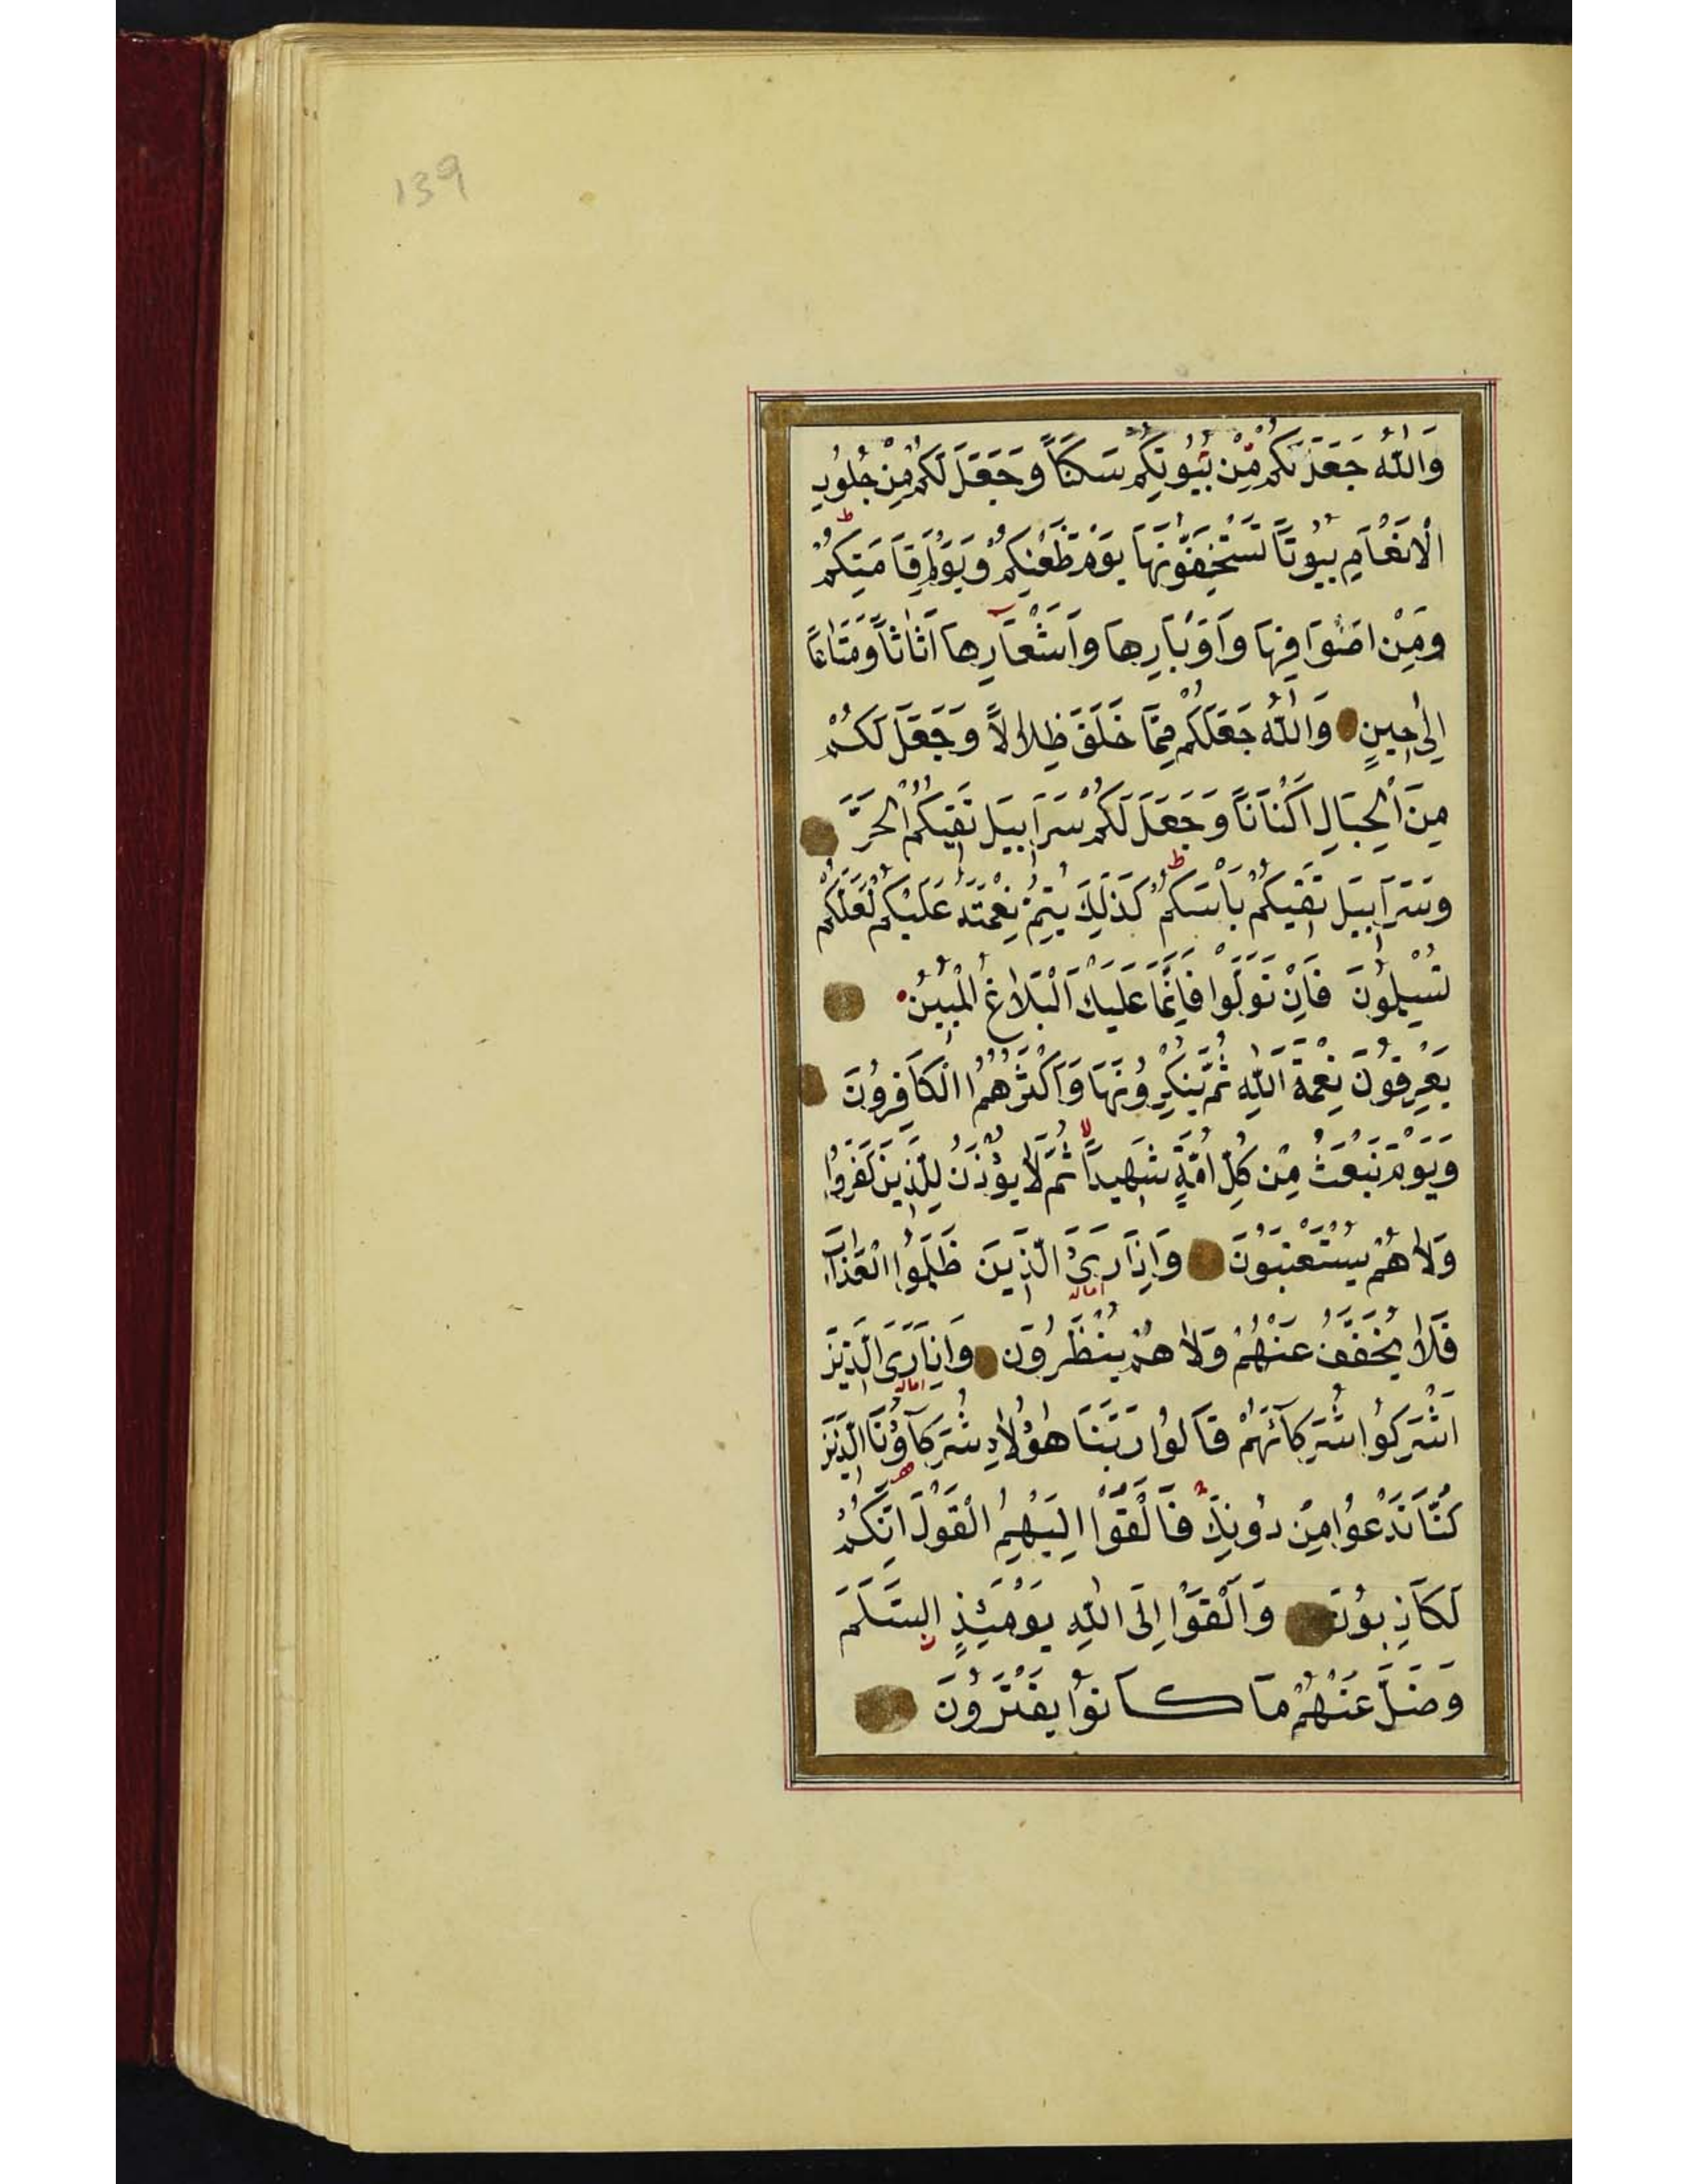 139
وَاللّٰهُ جَعَلَ لَكُمْ مِنْ بُيُوتِكُمْ سَكَنًا وَجَعَلَ لَكُمْ مِنْ جُلُودِ
الْاَنْعَامِ بُيُوتًا تَسْتَخِفُّونَهَا يَوْمَ ظَعْنِكُمْ وَيَوْمَ اِقَامَتِكُمْ ط
وَمِنْ اَصْوَافِهَا وَاَوْبَارِهَا وَاَشْعَارِهَا اَثَاثًا وَمَتَاعًا
اِلٰى حِينٍ وَاللّٰهُ جَعَلَ لَكُمْ مِمَّا خَلَقَ ظِلَالًا وَجَعَلَ لَكُمْ
مِنَ الْجِبَالِ اَكْنَانًا وَجَعَلَ لَكُمْ سَرَابِيلَ تَقِيكُمُ الْحَرَّ
وَسَرَابِيلَ تَقِيكُمْ بَأْسَكُمْ ط كَذَلِكَ يُتِمُّ نِعْمَتَهُ عَلَيْكُمْ لَعَلَّكُمْ
تُسْلِمُونَ فَاِنْ تَوَلَّوْا فَاِنَّمَا عَلَيْكَ الْبَلَاغُ الْمُبِينُ
يَعْرِفُونَ نِعْمَةَ اللّٰهِ ثُمَّ يُنْكِرُونَهَا وَاَكْثَرُهُمُ الْكَافِرُونَ
وَيَوْمَ نَبْعَثُ مِنْ كُلِّ اُمَّةٍ شَهِيدًا لا ثُمَّ لَا يُؤْذَنُ لِلَّذِينَ كَفَرُوا
وَلَا هُمْ يُسْتَعْتَبُونَ وَاِذَا رَىَ الَّذِينَ ظَلَمُوا الْعَذَابَ
اماله
فَلَا يُخَفَّفُ عَنْهُمْ وَلَا هُمْ يُنْظَرُونَ وَاِذَا رَىَ الَّذِينَ
اماله
اَشْرَكُوا شُرَكَآئَهُمْ قَالُوا رَبَّنَا هٰؤُلَاءِ شُرَكَآؤُنَا الَّذِينَ
كُنَّا نَدْعُوا مِنْ دُونِكَ فَاَلْقَوْا اِلَيْهِمُ الْقَوْلَ اِنَّكُمْ
لَكَاذِبُونَ وَاَلْقَوْا اِلَى اللّٰهِ يَوْمَئِذٍ السَّلَمَ
وَضَلَّ عَنْهُمْ مَا كَانُوا يَفْتَرُونَ